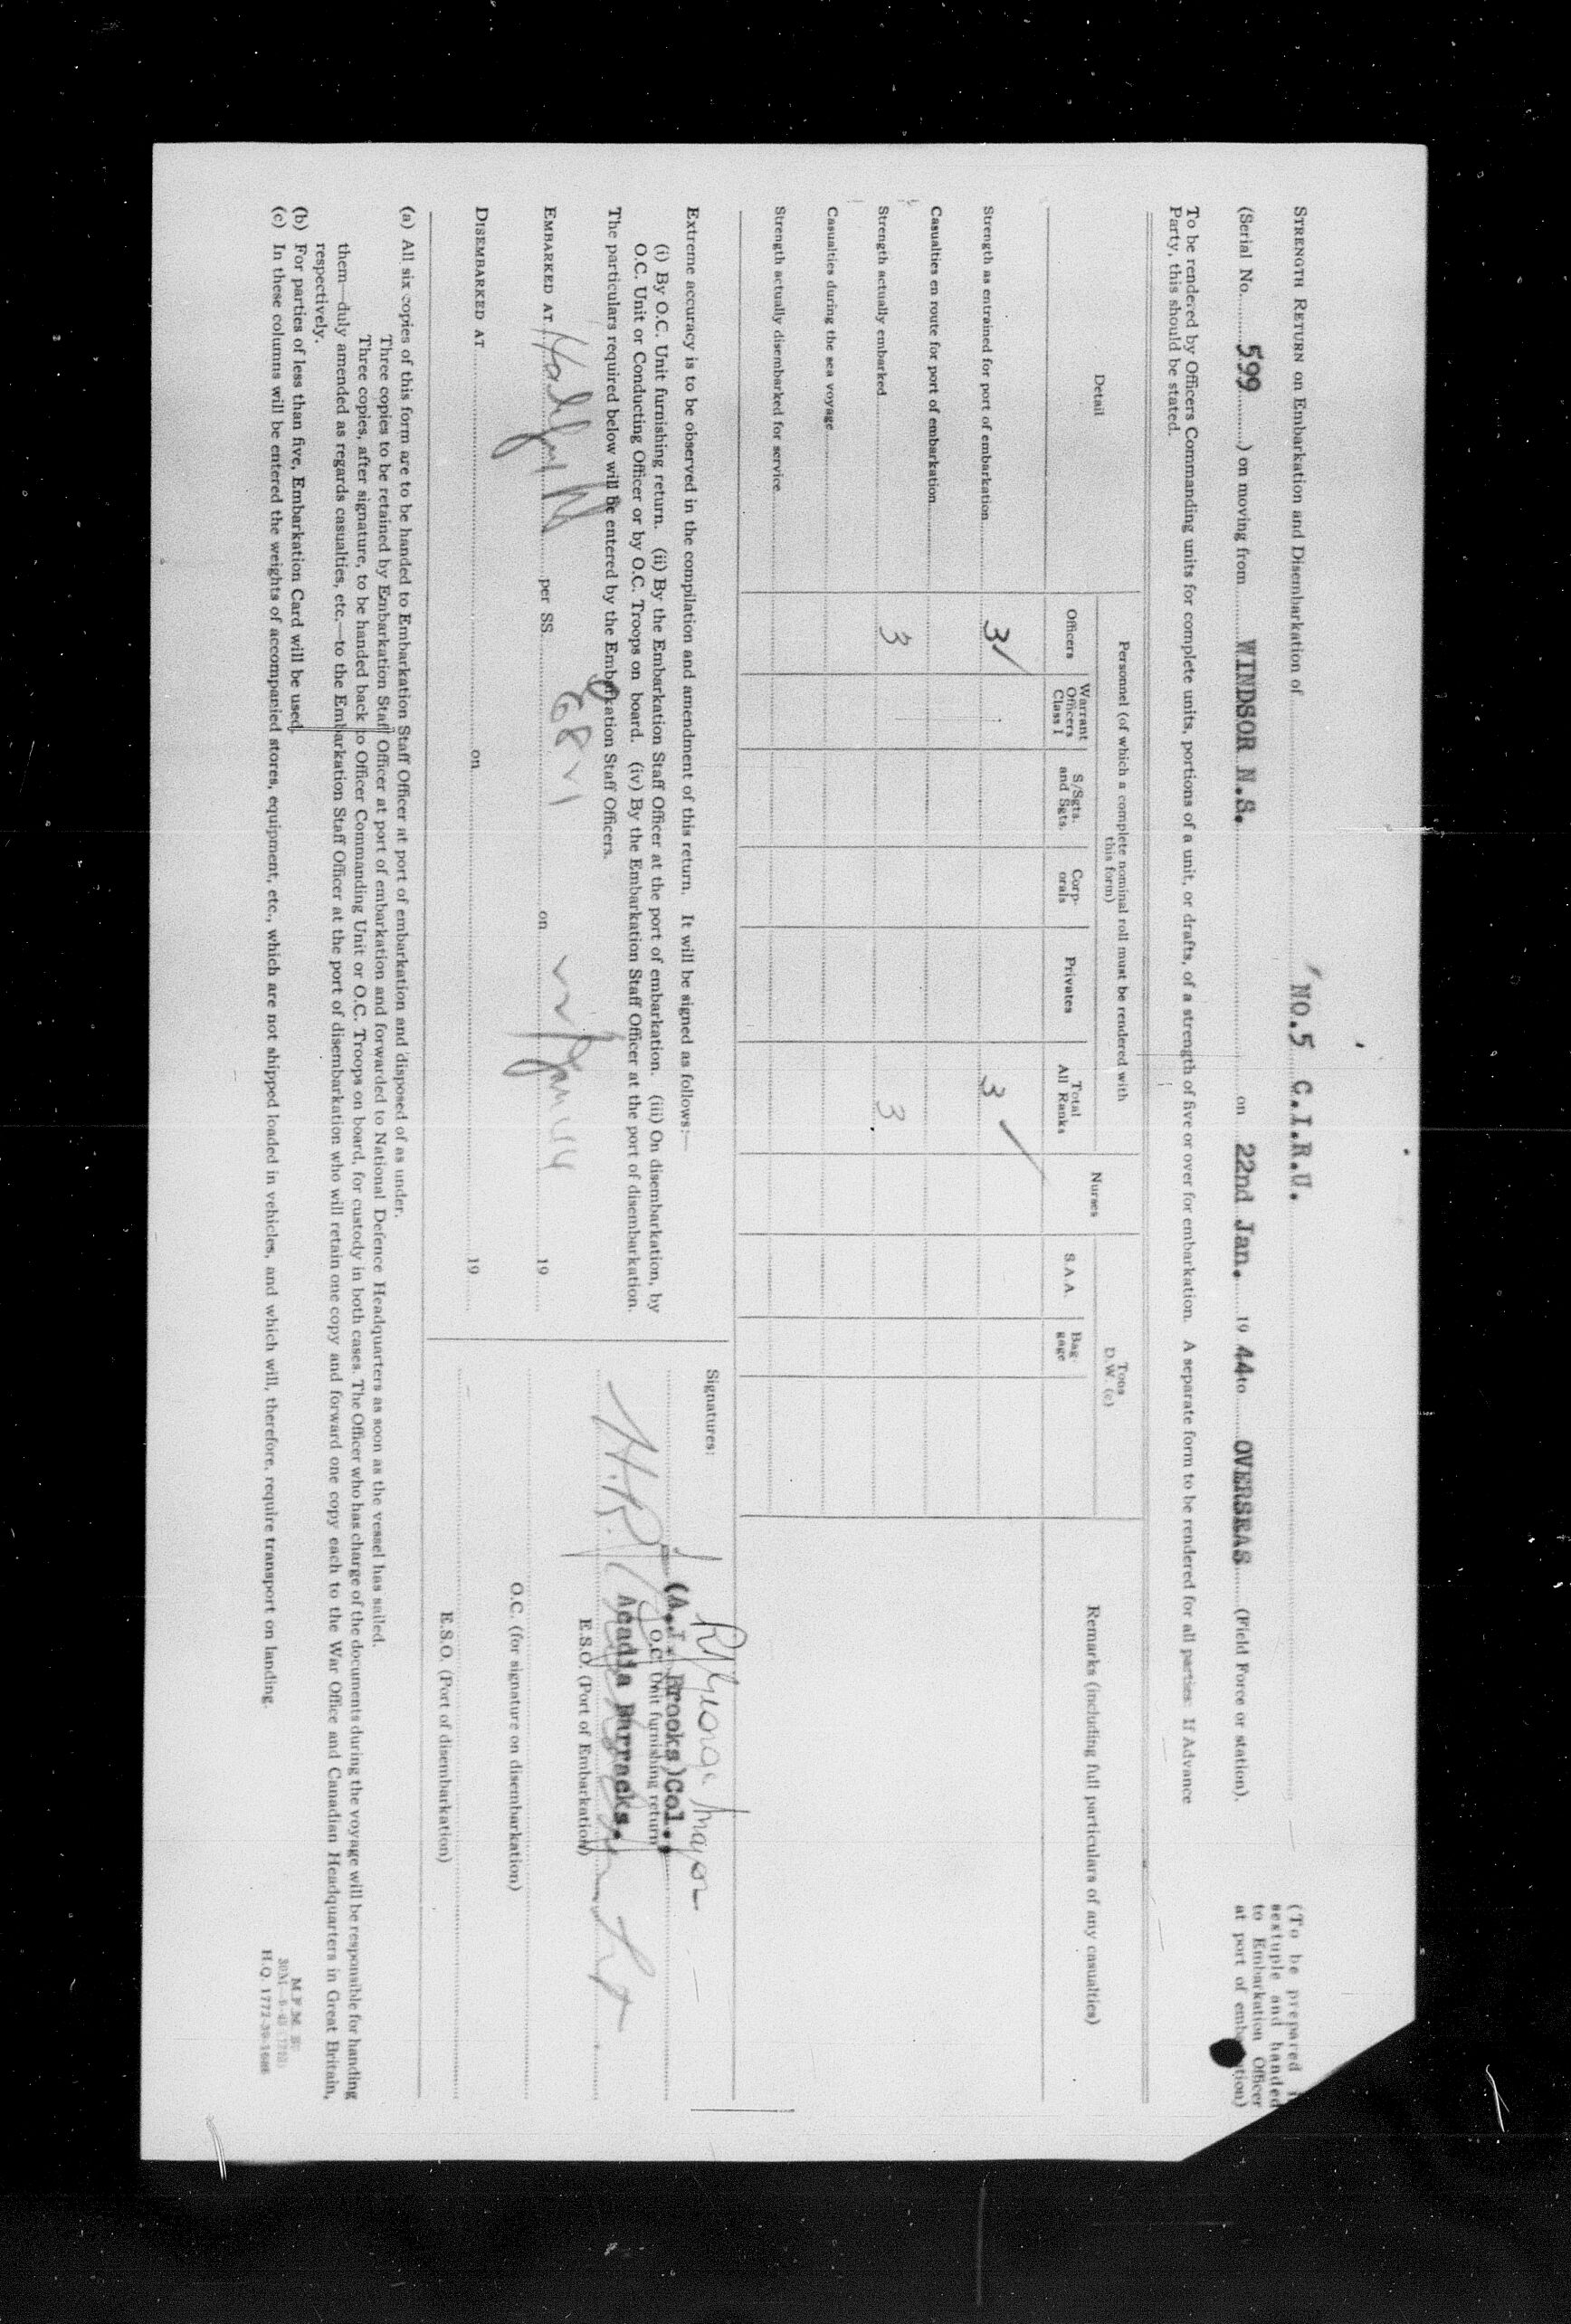 STRENGTH RETURN on Embarkation and Disembarkation of NO.5 C.I.R.U.
(To be prepared in
sextuple and handed
to Embarkation Officer
at port of embarkation)
(Serial No. 599 ) on moving from WINDSOR N.S. on 22nd Jan. 19 44 to OVERSEAS (Field Force or station).
To be rendered by Officers Commanding units for complete units, portions of a unit, or drafts, of a strength of five or over for embarkation. A separate form to be rendered for all parties. If Advance
Party, this should be stated.
Personnel (of which a complete nominal roll must be rendered with
this form)
Tons
D.W. (c)
Detail
Officers
Warrant
Officers
Class I
S/Sgts.
and Sgts.
Corp-
orals
Privates
Total
All Ranks
Nurses
S.A.A.
Bag-
gage
Remarks (including full particulars of any casualties)
Strength as entrained for port of embarkation 3 ✓ 3 ✓
Casualties en route for port of embarkation
Strength actually embarked 3 3
Casualties during the sea voyage
Strength actually disembarked for service
Extreme accuracy is to be observed in the compilation and amendment of this return. It will be signed as follows:—
(i) By O.C. Unit furnishing return. (ii) By the Embarkation Staff Officer at the port of embarkation. (iii) On disembarkation, by
O.C. Unit or Conducting Officer or by O.C. Troops on board. (iv) By the Embarkation Staff Officer at the port of disembarkation.
The particulars required below will be entered by the Embarkation Staff Officers.
EMBARKED AT Halifax NS per SS on 22 Jan 44 19
DISEMBARKED AT on 19
Signatures:
George Major
(A.I. Brooks)Col.,
O.C. Unit furnishing return
Acadia Barracks.
E.S.O. (Port of Embarkation)
O.C. (for signature on disembarkation)
E.S.O. (Port of disembarkation)
(a) All six copies of this form are to be handed to Embarkation Staff Officer at port of embarkation and disposed of as under.
Three copies to be retained by Embarkation Staff Officer at port of embarkation and forwarded to National Defence Headquarters as soon as the vessel has sailed.
Three copies, after signature, to be handed back to Officer Commanding Unit or O.C. Troops on board, for custody in both cases. The Officer who has charge of the documents during the voyage will be responsible for handing
them—duly amended as regards casualties, etc.—to the Embarkation Staff Officer at the port of disembarkation who will retain one copy and forward one copy each to the War Office and Canadian Headquarters in Great Britain,
respectively.
(b) For parties of less than five, Embarkation Card will be used.
(c) In these columns will be entered the weights of accompanied stores, equipment, etc., which are not shipped loaded in vehicles, and which will, therefore, require transport on landing.
H.Q. 1772-39-1686